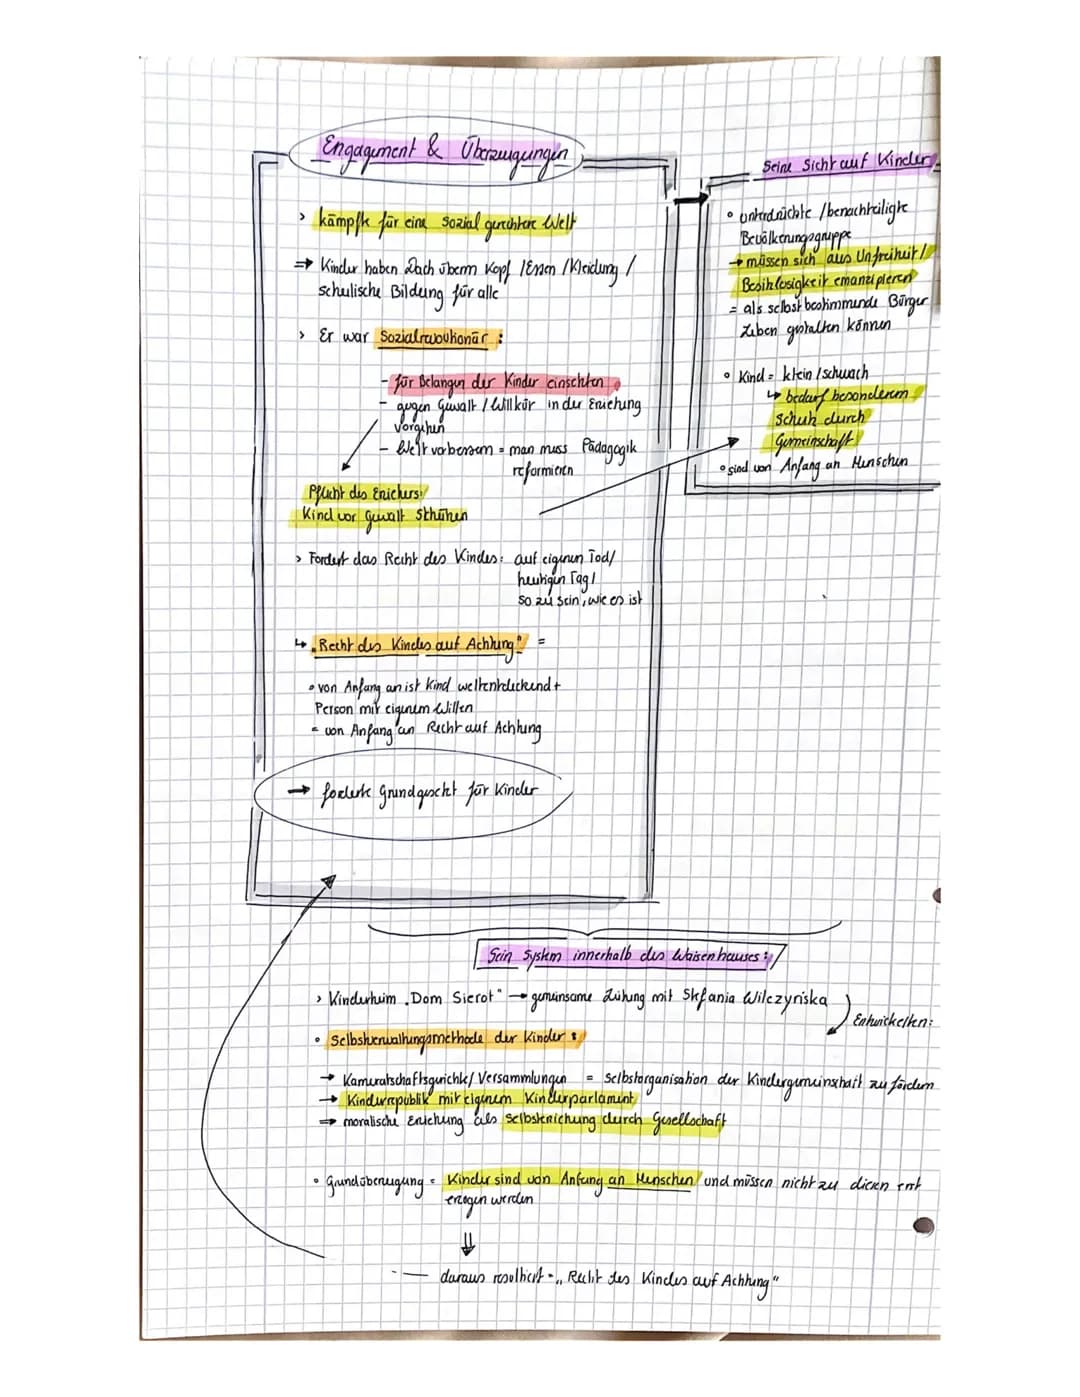 Engagement & Überzeugungen
> kämpfte für eine sozial gerechtere Welt
⇒ Kinder haben Dach überm Kopf / Essen / Kleidung /
schulische Bildung für alle
> Er war Sozialrevolutionär :
- für Belangen der Kinder einsetzten
- gegen Gewalt / Willkür in der Erziehung
vorgehen
- Welt verbessern = man muss Pädagogik
reformieren
Pflicht des Erziehers:
Kind vor Gewalt schützen
> Fordert das Recht des Kindes: auf eigenen Tod/
heutigen Tag/
so zu sein, wie es ist
↳ „Recht des Kindes auf Achtung" =
• von Anfang an ist Kind weltentdeckend +
Person mit eigenem Willen
= von Anfang an Recht auf Achtung
→ forderte Grundgesetzt für Kinder
Seine Sicht auf Kinder
• unterdrückte / benachteiligte
Bevölkerungsgruppe
→ müssen sich aus Unfreiheit /
Besitzlosigkeit emanzipieren
= als selbst bestimmende Bürger
Leben gestalten können
• Kind = klein / schwach
↳ bedarf besonderem
Schutz durch
Gemeinschaft
• sind von Anfang an Menschen
Sein System innerhalb des Waisenhauses :
> Kinderheim „Dom Sierot" → gemeinsame Leitung mit Stefania Wilczyńska
Entwickelten:
• Selbstverwaltungsmethode der Kinder :
→ Kameratschaftsgerichte / Versammlungen = Selbstorganisation der Kindergemeinschaft zu fördern
→ Kinderrepublik mit eigenem Kinderparlament
⇒ moralische Erziehung als Selbsterziehung durch Gesellschaft
• Grundüberzeugung = Kinder sind von Anfang an Menschen und müssen nicht zu diesen erst
erzogen werden
⇓
daraus resultiert - „Recht des Kindes auf Achtung"